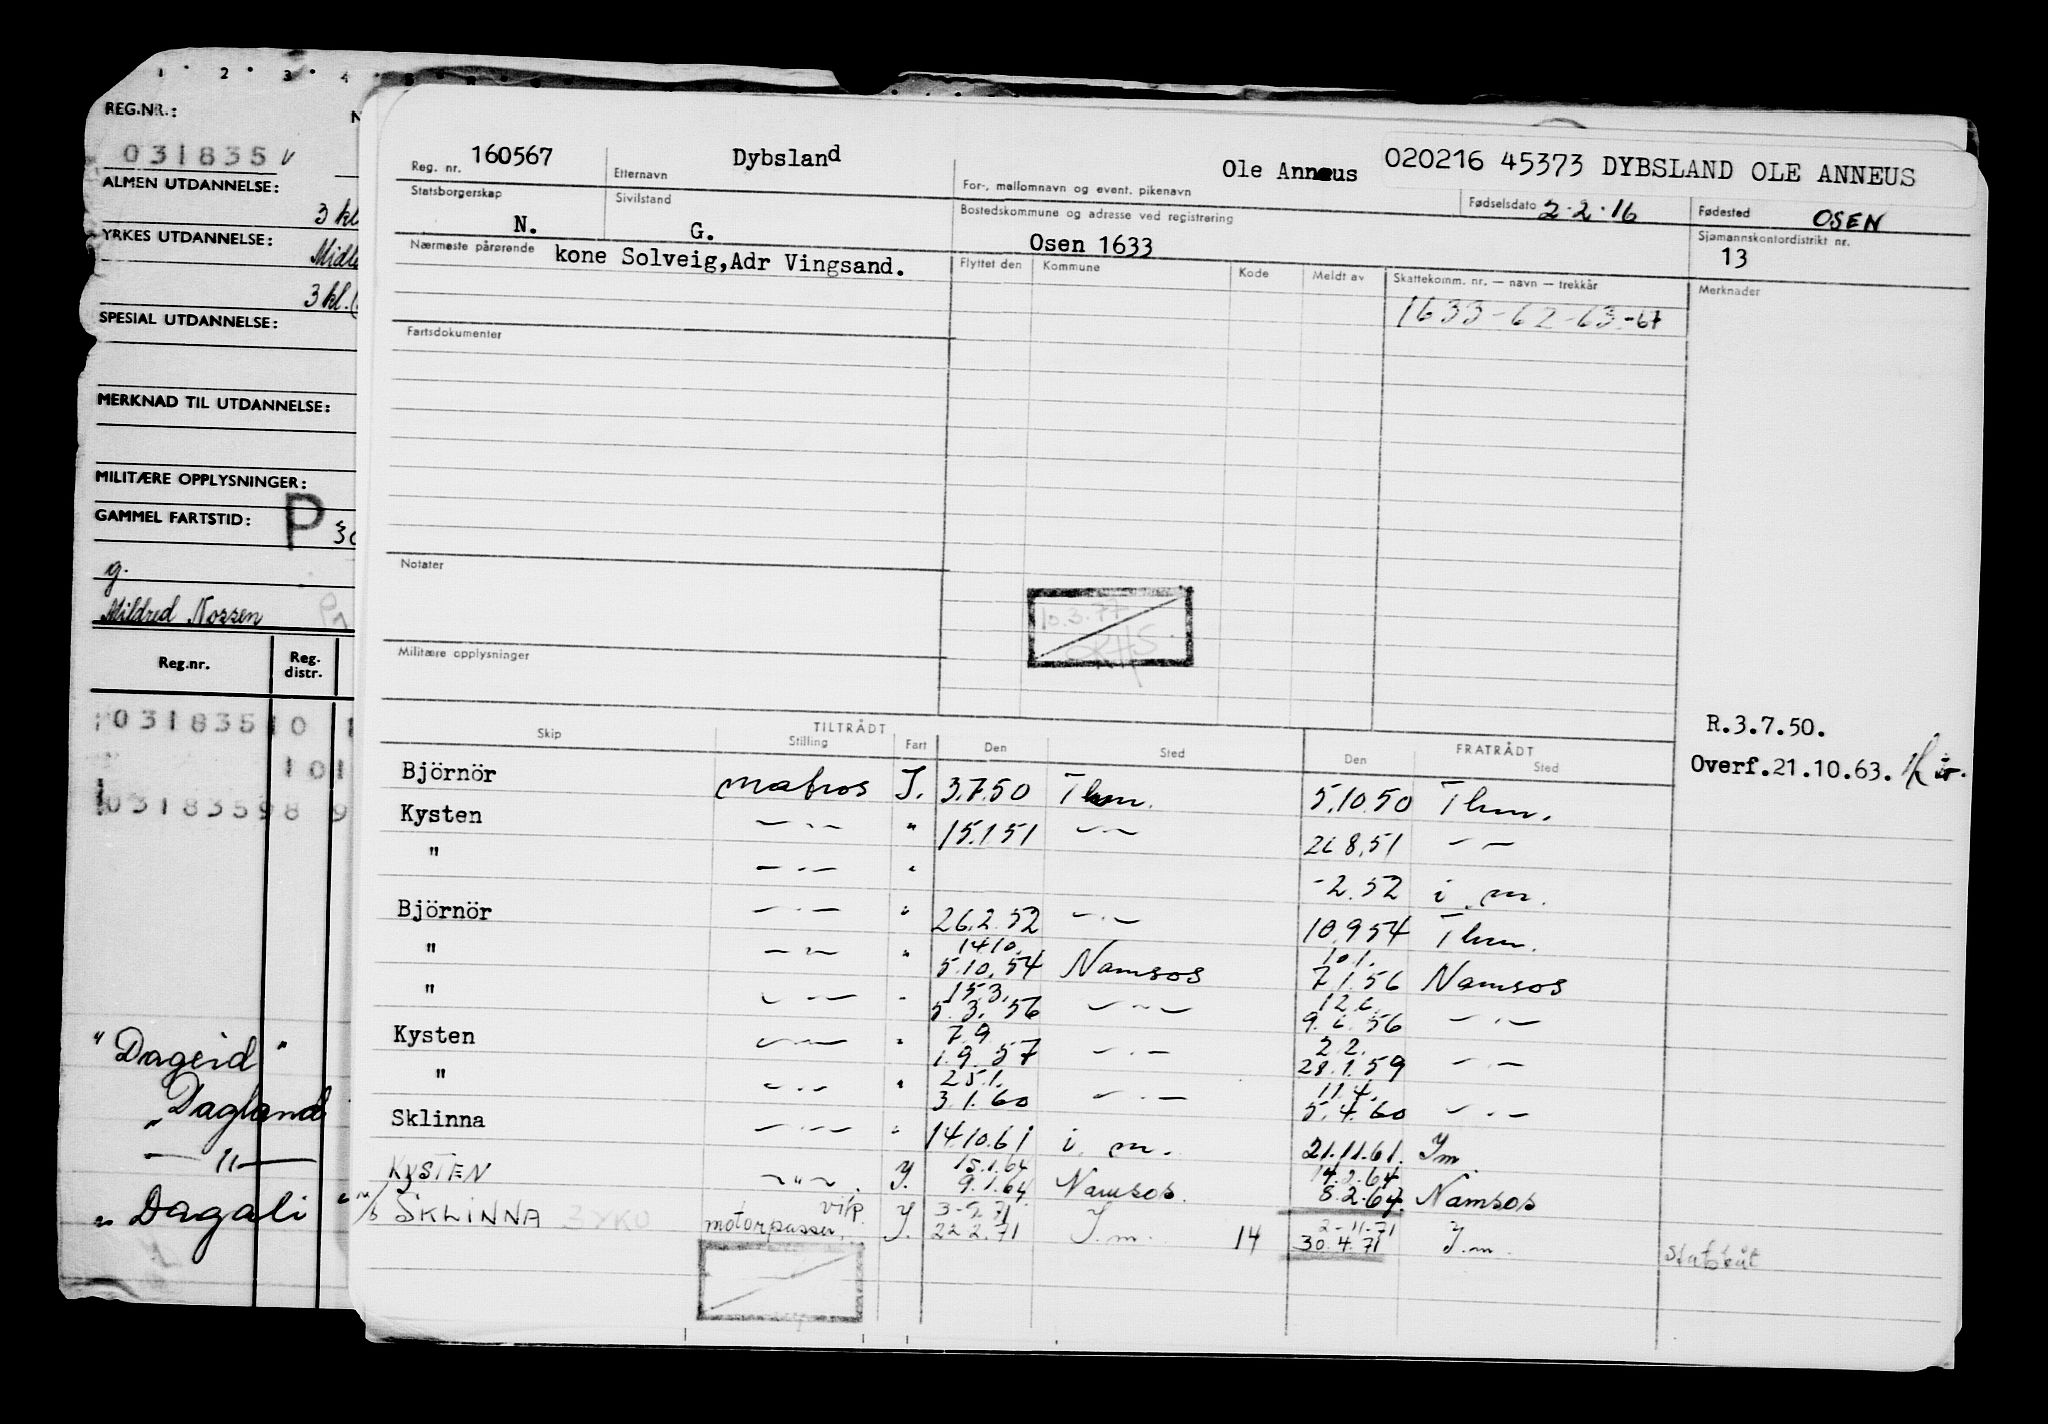 1 2 3 4
REG.NR.:
031835 v
ALMEN UTDANNELSE:
3 kl
YRKES UTDANNELSE:
3 kl.
SPESIAL UTDANNELSE:
MERKNAD TIL UTDANNELSE:
MILITÆRE OPPLYSNINGER:
GAMMEL FARTSTID: P
g.
Mildred Nossen
Reg.nr. Reg. distr.
031835 10 1
101
03183598 9
"Dageid"
"Dagland
— " —
"Dagali"
Reg. nr. 160567
Etternavn Dybsland
For-, mellomnavn og event. pikenavn Ole Anneus
020216 45373 DYBSLAND OLE ANNEUS
Statsborgerskap N.
Sivilstand G.
Bostedskommune og adresse ved registrering Osen 1633
Fødselsdato 2-2-16
Fødested OSEN
Nærmeste pårørende kone Solveig,Adr Vingsand.
Sjømannskontordistrikt nr. 13
Flyttet den Kommune Kode Meldt av Skattekomm. nr. — navn — trekkår Merknader
1633-62-63-67
Fartsdokumenter
Notater
10.3.77
Militære opplysninger
R.3.7.50.
Overf.21.10.63.
TILTRÅDT FRATRÅDT
Skip Stilling Fart Den Sted Den Sted
Björnör matros I. 3.7.50 Thm. 5.10.50 Thm.
Kysten —..— " 15.1 51 —..— 26 8,51 — —
" —..— " -2.52 i. m.
Björnör —..— " 26.2.52 —.— 10.9 54 Thm.
14 10. 10 1.
" —..— " 5.10.54 Namsos 7.1.56 Namsos
15.3. 12.6.
" —..— " 5.3.56 —..— 9.6.56 —..—
7.9 2.2.
Kysten —..— " 1.9.57 —..— 28.1.59 —..—
25.1. 11.4.
" —..— " 3.1.60 —..— 5.4.60 —..—
Sklinna —..— " 14.10.61 i. m. 21.11.61. I m
15.1.64 14.2.64
KYSTEN —"— . I. 9.1.64 Namsos. 8.2.64. Namsos
3-5.71 2-11-71
m/s SKLINNA 3YKO motorpasser I. 22.2.71 I.m. 14 30.4.71 I.m.